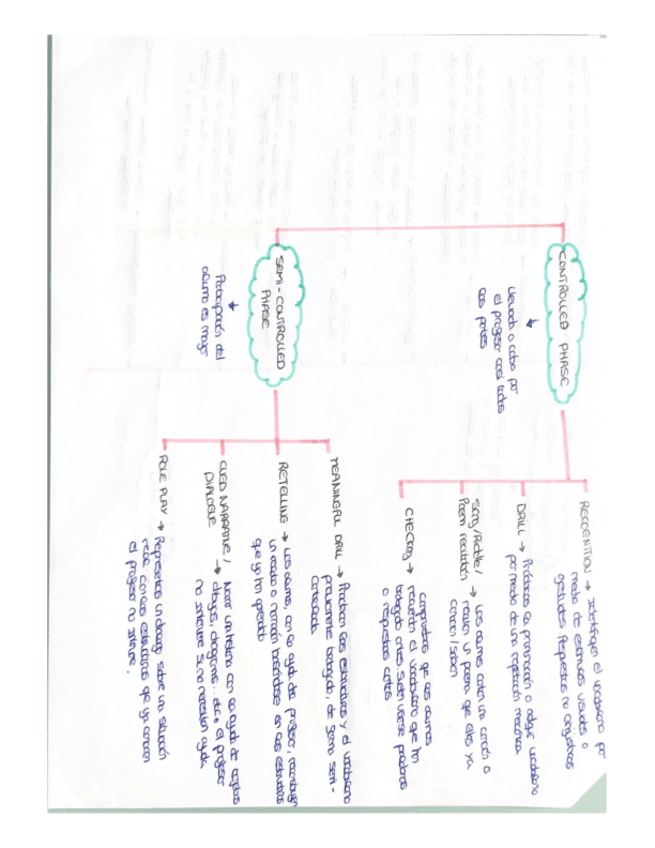 CONTROLLED PHASE
↓
llevada a cabo por
el profesor casi todas
las partes
RECOGNITION → Identifican el vocabulario por
medio de estímulos visuales o
gestuales. Respuestas no lingüísticas
DRILL → Practicas la pronunciación o adquir vocabulario
por medio de una repetición mecánica.
Song / Riddle /
Poem recitation → Los alumnos cantan una canción o
recitan un poema que ellos ya
conocen / saben
CHECKING → comprobamos que los alumnos
recuerdan el vocabulario que han
trabajado antes. Suelen usarse palabras
o respuestas cortas
SEMI-CONTROLLED
PHASE
↓
Participación del
alumno es mayor
MEANINGFUL DRILL → Practican las estructuras y el vocabulario
previamente trabajado, de forma semi-
controlada.
RETELLING → Los alumnos, con la ayuda del profesor, reconstruyen
un relato o narración basándose en las estructuras
que ya han aprendido
CUED NARRATIVE /
DIALOGUE → Narrar una historia con la ayuda de tarjetas
dibujos, diagramas... etc. el profesor
no interviene si no necesitan ayuda.
ROLE PLAY → Representar un diálogo sobre una situación
real, con las estructuras que ya conocen
el profesor no interviene.